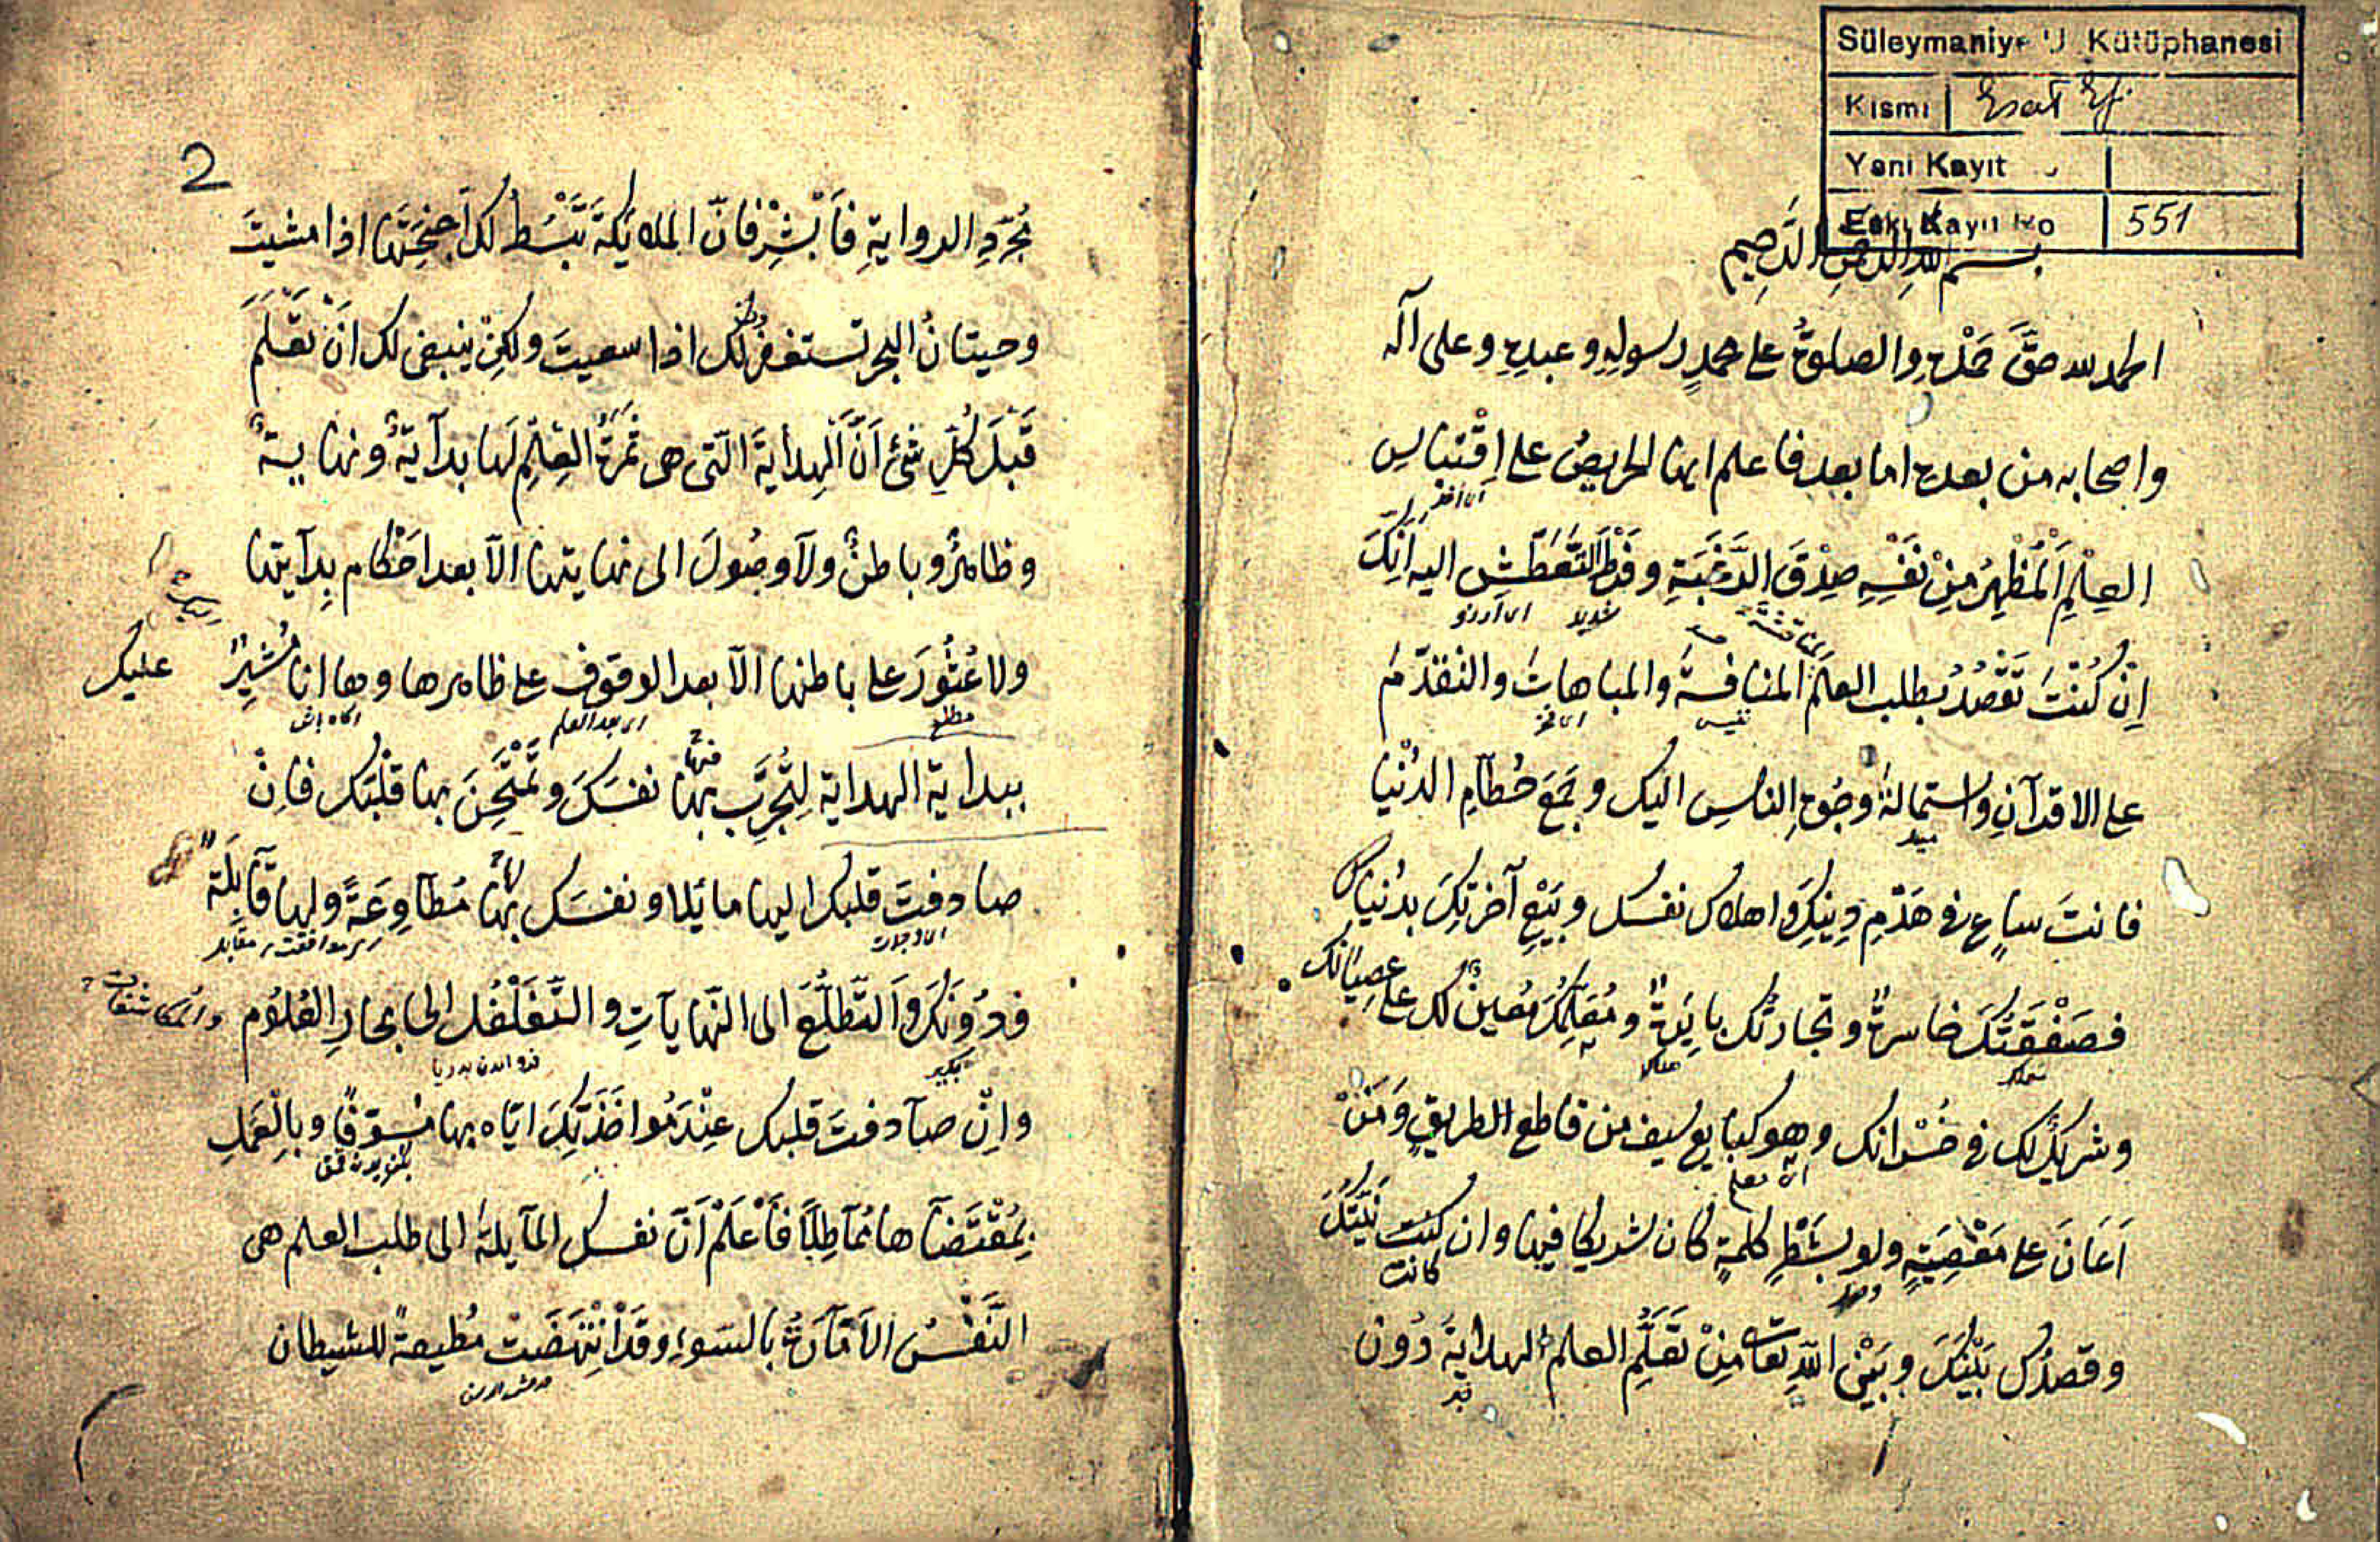 Süleymaniye U. Kütüphanesi
Kısmı | Esat Ef.
Yeni Kayıt
Eski Kayıt No | 551
بسم الله الرحمن الرحيم
الحمد لله حقَّ حَمْدِه والصلوةُ على محمدٍ رسولِهِ وعبدِهِ وعلى آله
واصحابه من بعده اما بعد فاعلم ايها الحريصُ على اِقْتباسِ
العِلْمِ اَلْمُظْهِرُ مِنْ نَفْسِهِ صِدْقَ الرَّغْبَةِ وفَرْطَ التَّعَطُّشِ اليه اَنَّكَ
اِنْ كُنْتَ تَقْصُدُ بطلب العلمَ المنافسةَ والمباهاتَ والتقدّمَ
على الاقرآنِ واستمالةَ وجُوهِ الناسِ اليك وجَمْعَ حُطآمِ الدُنْيا
فانتَ ساعٍ فى هَدْمِ دِينِكَ واهلاك نفسك وبَيْعِ آخرتِكَ بدُنْياك
فصَفْقَتُكَ خاسرةٌ وتجارتُك بايَرةٌ ومُعَلِّمُكَ مُعينٌ لك على عصيانك
وشريكٌ لك فى خُسْرانك وهو كبايع سيف من قاطع الطريقِ وَمَنْ
اَعَانَ على مَعْصِيَةٍ ولو بشَطْرِ كلمةٍ كان شريكا فيها وان كنت نِيَّتُكَ
كانت
وقصدُك بَيْنَكَ وبَيْنَ اللّهِ تعالى مِنْ تَعَلُّمِ العلم الهدايةَ دُونَ
2
مُجَرَّدِ الروايةِ فَاَبْشِرْ فانّ الملائكةَ تَبْسُطُ لك اَجْنِحَتَها اذا مشيتَ
وحيتانُ البحر تستغفرُ لك اذا سعيتَ ولكِنْ ينبغى لك اَنْ تَعْلَمَ
قَبْلَ كُلِّ شئ اَنَّ الهِدايةَ الّتى هى ثَمَرَةُ العِلْمِ لها بدآيةٌ ونهايةٌ
وظاهرٌ وباطنٌ ولآ وصُولَ الى نهايتها الآ بعد احْكام بِدآيتها
ولا عُثُورَ على باطنها الآ بعد الوقوف على ظاهرها وها انا مُشيرٌ عليك
مطلع
اى بعد العلم
ببداية الهداية لِتُجَرِّبَ بها نفسَكَ وتَمْتَحِنَ بها قلْبَك فاِنْ
فيها
صادفتَ قلبك اليها مائلا ونفسَك بها مُطآوِعَةً ولها قآبِلَةً
فدُونَكَ والتَّطَلُّعَ الى النّهايآتِ والتَّغَلْغُلَ الى بحارِ العُلُوم والمكاشفات
واِنْ صآدفتَ قلبك عِنْدَ مُواخَذَتِكَ ايّاه بها مُسَوِّفًا وبِالْعَمَلِ
بِمُقْتَضآها مُمآطِلًا فَاعْلَمْ اَنّ نفسك المآيلةَ الى طلب العلم هى
النَّفْسُ الاَمّآرَةُ بالسّوء وقد اِنْتَهَضَت مُطيعةً للشيطان